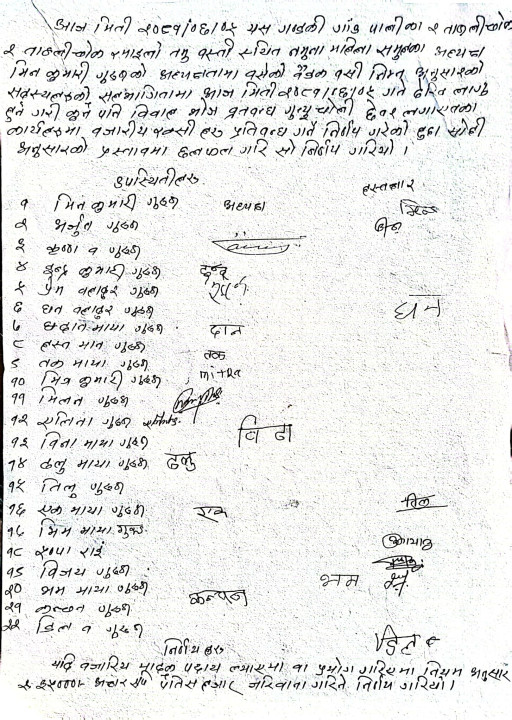 आज मिती २०८१/०६/०८ यस गण्डकी गाँउ पालीका २ ताछलीचोक
२ ताछलीचोक रमाइलो तमु वस्ती स्थित तमुना महिला समुहका अध्यक्ष
मिन कुमारी गुरुङको अध्यक्षतामा बसेको बैठक वसी निम्न अनुसारको
सदस्यहरुको सहभागितामा आज मिती २०८१/०६/०८ गते देखि लागु
हुने गरी कुनै पनि विवाह भोज व्रतबन्ध मृत्यु चोली छेवर लगायतका
कार्यहरुमा वजारीय वक्सी हरु प्रतिबन्ध गर्ने निर्णय गरेको हुदा सोही
अनुसारको प्रस्तावमा छलफल गरि सो निर्णय गरियो ।
उपस्थितीहरु हस्ताक्षर
१ मिन कुमारी गुरुङ अध्यक्ष
२ अर्जुन गुरुङ
३ कृष्ण व गुरुङ
४ इन्द्र कुमारी गुरुङ इन्द्र
५ प्रेम वहादुर गुरुङ
६ धन वहादुर गुरुङ धन
७ माया गुरुङ दान
८ हस्त मान गुरुङ
९ तक माया गुरुङ तक
१० मित्र कुमारी गुरुङ mitra
११ मिलन गुरुङ
१२ सलिना गुरुङ
१३ विना माया गुरुङ विना
१४ ढलु माया गुरुङ ढलु
१५ तिलु गुरुङ तिल
१६ एक माया गुरुङ एक
१७ भिम माया गुरुङ
१८ रुपा राई
१९ विजय गुरुङ
२० भम माया गुरुङ भम
२१ कल्पन गुरुङ कल्पन
२२ डिल व गुरुङ डिल व
निर्णय हरु
यदि वजारिय मादक पदार्थ ल्याएमा वा प्रयोग गरिएमा नियम अनुसार
रु ३५००० अक्षरुपी पैतिस हजार जरिवाना गरिने निर्णय गरियो ।